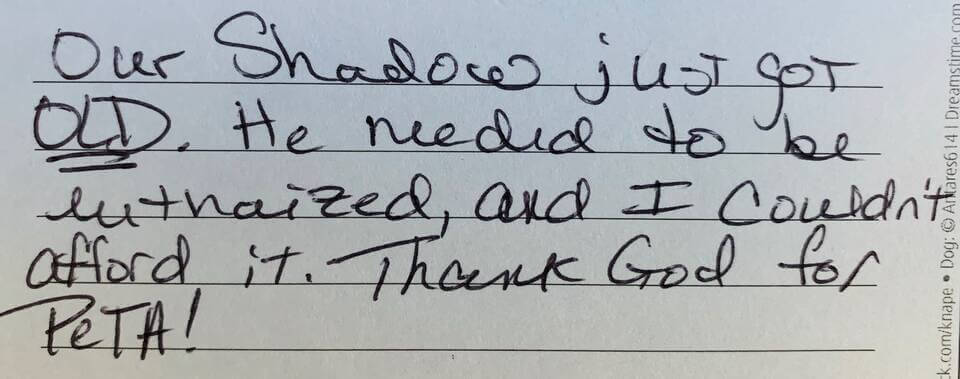 Our Shadow just got
OLD. He needed to be
euthnaized, and I couldn't
afford it. Thank God for
PeTA!
ck.com/knape • Dog: © Antares614 | Dreamstime.com